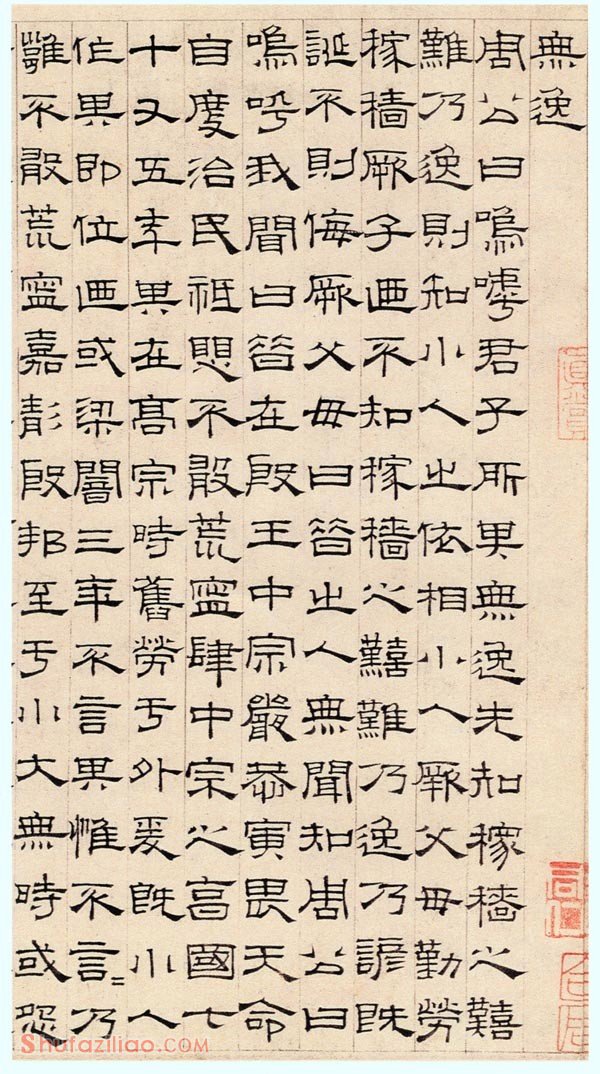 無逸
周公曰嗚嘑君子所其無逸先知稼穡之囏
難乃逸則知小人之依相小人厥父母勤勞
稼穡厥子迺不知稼穡之囏難乃逸乃諺既
誕不則侮厥父母曰昔之人無聞知周公曰
嗚呼我聞曰昔在殷王中宗嚴恭寅畏天命
自度治民祗愳不敢荒寧肆中宗之享國七
十又五年其在高宗時舊勞于外爰既小人
作其即位迺或梁闇三年不言其惟不言=乃
雝不敢荒寧嘉靜殷邦至于小大無時或怨
Shufaziliao.COM